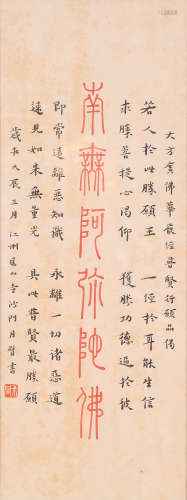 大方廣佛華嚴經普賢行願品偈
若人於此勝願王 一經於耳能生信
求勝菩提心渴仰 獲勝功德過於彼
南無阿弥陀佛
即常遠離惡知識 永離一切諸惡道
速見如來無量光 具此普賢最勝願
歲在 辰三月江洲 山寺沙門月 書